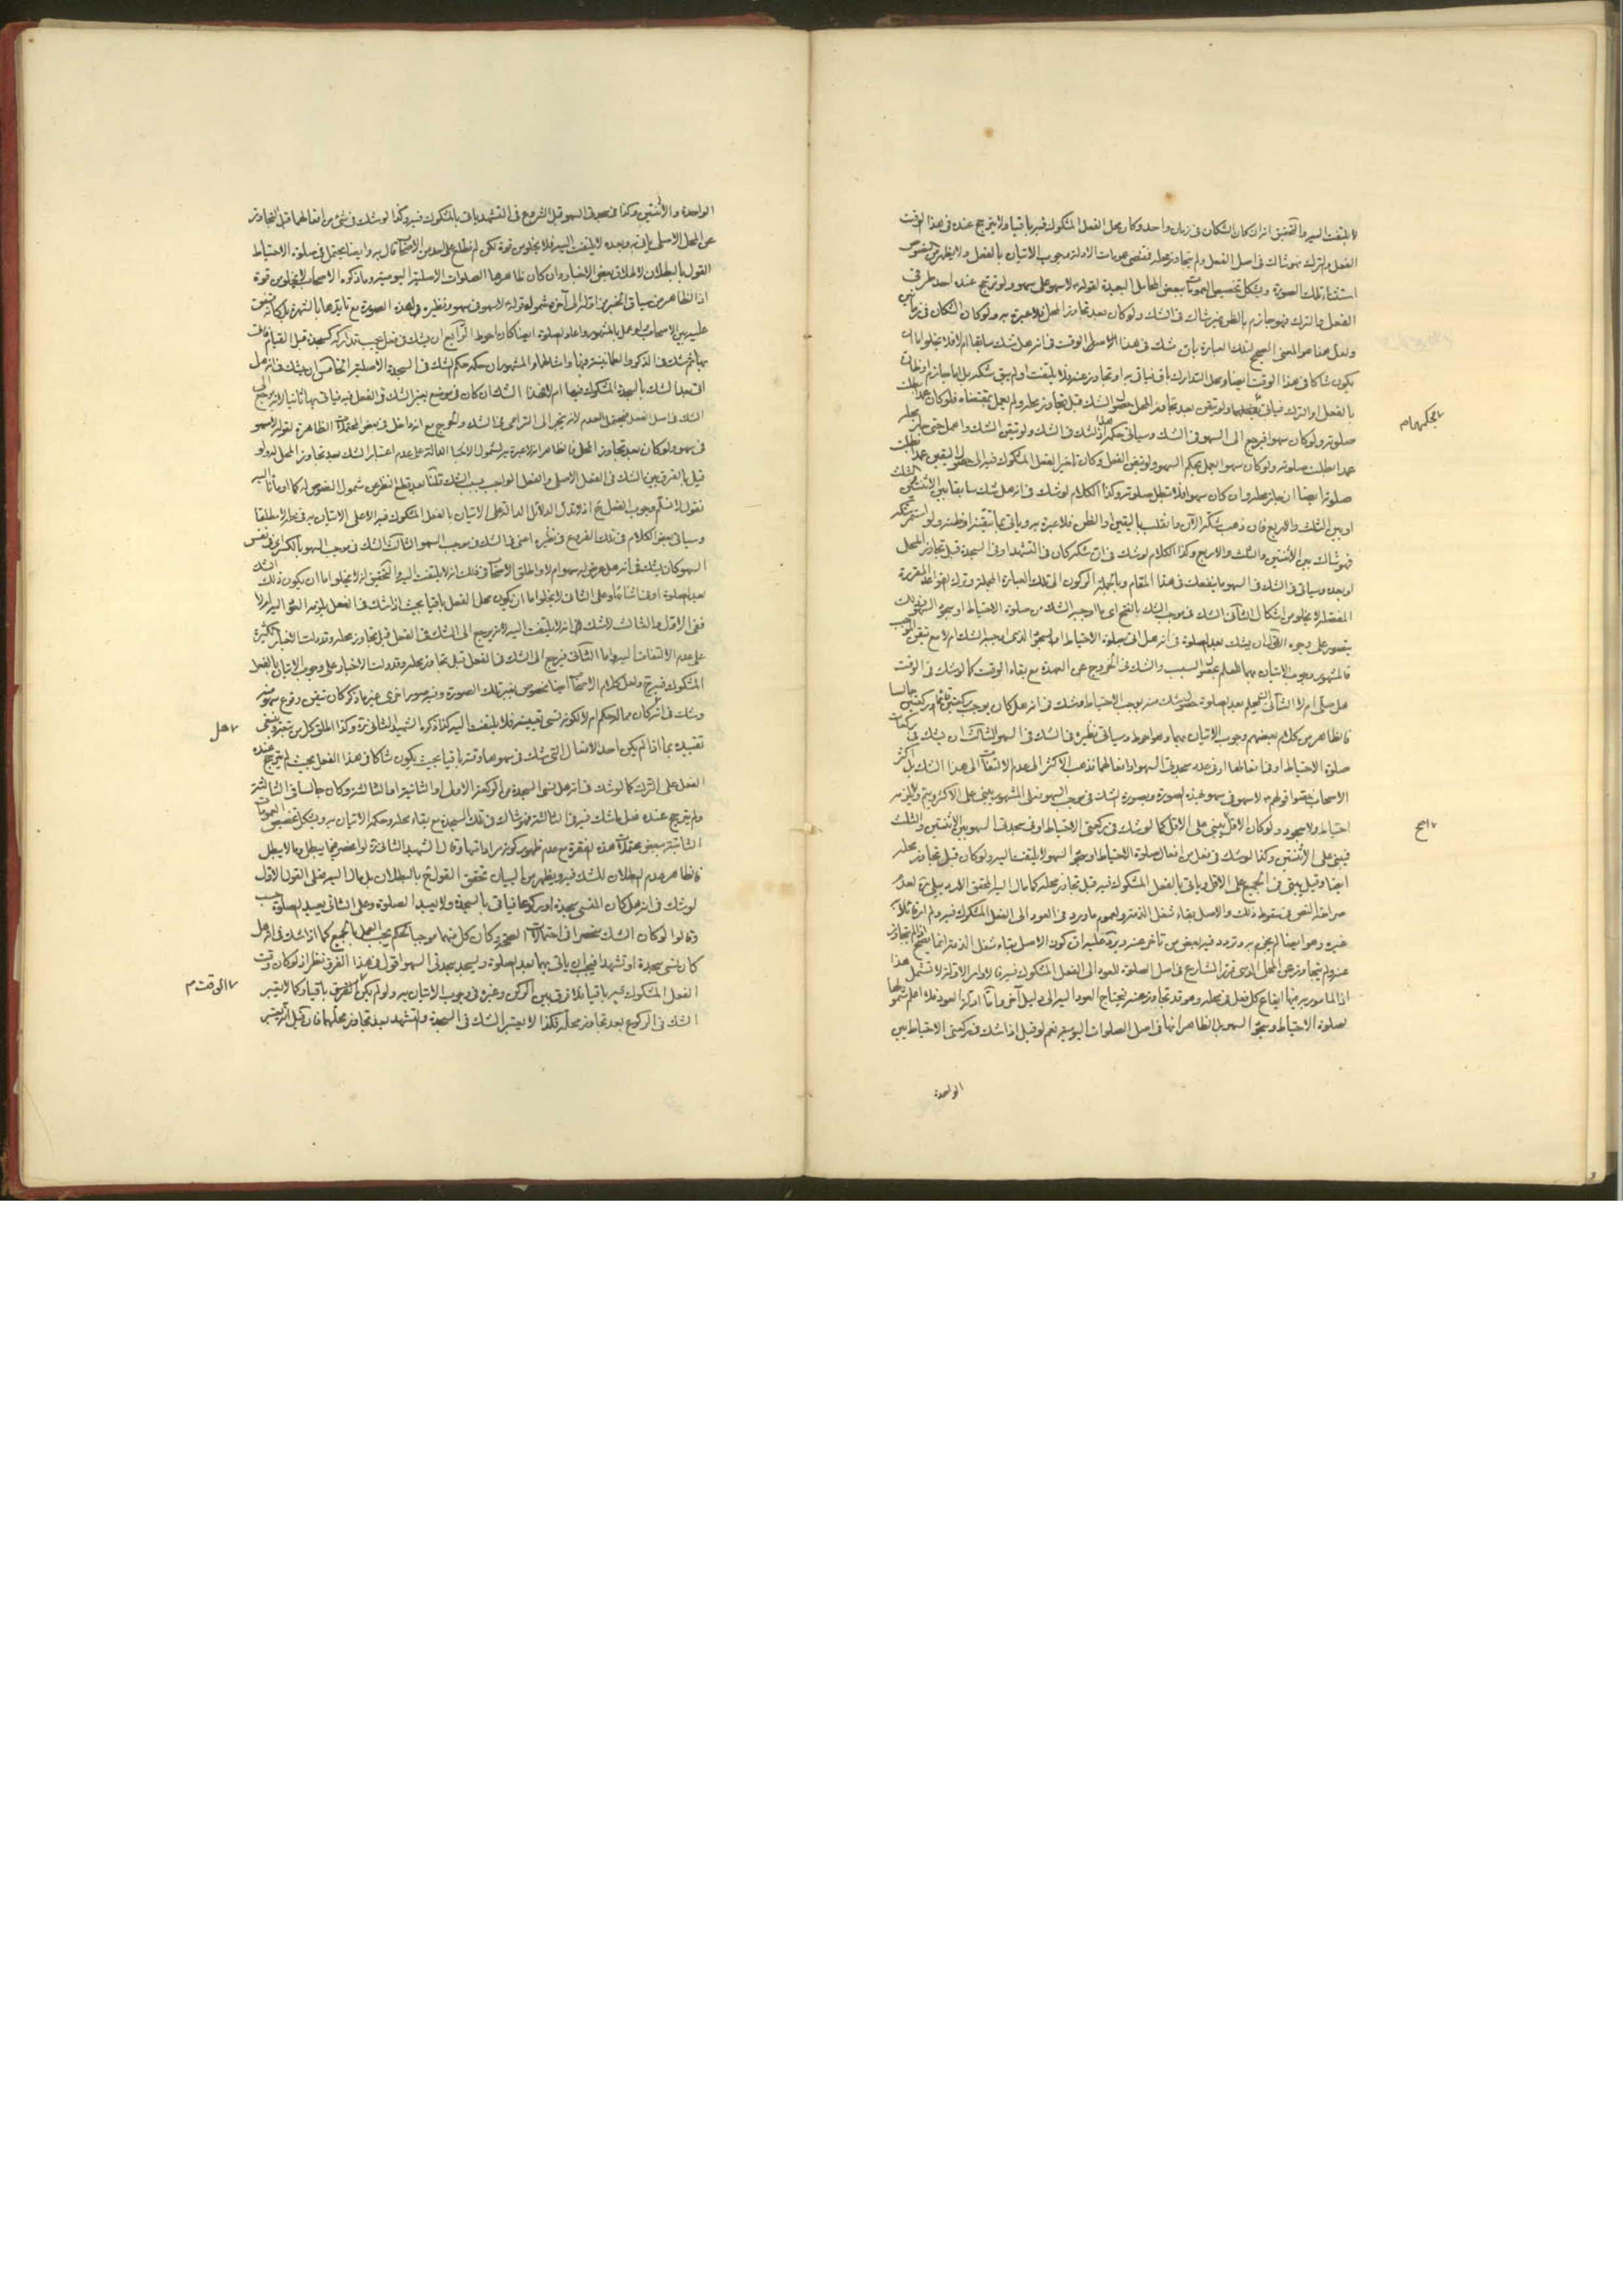 لا يلتفت اليه والتحقيق انه ان كان الشكان في زمان واحد وكان محل الفعل المشكوك فيه باقيا ولا يترجح عنده في هذا الوقت
الفعل والترك فهو شاك في اصل الفعل ولم يتجاوز محله فمقتضى عمومات الادلة وجوب الاتيان بالفعل ولا يظهر من النصوص
استثناء تلك الصورة ويشكل تخصيص العمومات ببعض المحامل البعيدة لقوله لا سهو على سهو ولو ترجح عنده احد طرفي
الفعل والترك فهو جازم بالظن غير شاك في الشك ولو كان بعد تجاوز المحل فلا عبرة به ولو كان الشكان في زمانين
ولعل هذا هو المعنى الصحيح لتلك العبارة بان شك في هذا الوقت في انه هل شك سابقا ام لا فلا يخلو اما ان
يكون شاكا في هذا الوقت ايضا ومحل التدارك باق فياتي به او تجاوز عنه فلا يلتفت او لم يبق شكه بل اما جازم او ظان
بالفعل او الترك فياتي بحكمهما ولو تيقن بعد تجاوز المحل حصول الشك قبل تجاوز محله ولم يعمل بمقتضاه فلو كان عمدا بطلت
صلوته ولو كان سهوا فيرجع الى السهو في الشك وسياتي حكمه هذا اذا شك في الشك ولو تيقن الشك واهمل حتى جاز محله
عمدا بطلت صلوته ولو كان سهوا يعمل بحكم السهو ولو تيقن الفعل وكان تاخير الفعل المشكوك فيه الى حصول اليقين عمدا بطلت
صلوته ايضا ان جاز محله وان كان سهوا فلا تبطل صلوته وكذا الكلام لو شك في انه هل شك سابقا بين الاثنتين والثلث
او بين الثلث والاربع فان ذهب شكه الآن وانقلب باليقين او الظن فلا عبرة به وياتي بما تيقنه او ظنه ولو استمر شكه
فهو شاك بين الاثنتين والثلث والاربع وكذا الكلام لو شك في ان شكه كان في التشهد او في السجدة قبل تجاوز المحل
او بعده وسياتي في الشك في السهو ما ينفعك في هذا المقام وبالجملة الركون الى تلك العبارة المجملة وترك القواعد المقررة
المفصلة لا يخلو من اشكال الثاني الشك في موجب الشك بالفتح اى ما اوجبه الشك من صلوة الاحتياط او سجود السهو وذلك
يتصور على وجوه الاول ان يشك بعد الصلوة في انه هل اتى بصلوة الاحتياط او السجود الذى اوجبه الشك ام لا مع تيقن الموجب
فالمشهور وجوب الاتيان بهما للعلم بحصول السبب والشك في الخروج عن العهدة مع بقاء الوقت كما لو شك في الوقت
هل صلى ام لا الثاني ان يعلم بعد الصلوة حصول شك منه يوجب الاحتياط وشك في انه هل كان يوجب ركعتين قائما او ركعتين جالسا
فالظاهر من كلام بعضهم وجوب الاتيان بهما وهو احوط وسياتي نظيره في الشك في السهو الثالث ان يشك في ركعات
صلوة الاحتياط او في افعالها او في عدد سجدتي السهو او افعالهما فذهب الاكثر الى عدم الالتفات الى هذا الشك بل اكثر
الاصحاب خصوا قولهم ع لا سهو في سهو بهذه الصورة وبصورة الشك في موجب السهو فعلى المشهور يبنى على الاكثر ويتم ولا يلزمه
احتياط ولا سجود ولو كان الاقل اصح يبنى على الاقل كما لو شك في ركعتي الاحتياط او في سجدتي السهو بين الاثنتين والثلث
فيبنى على الاثنتين وكذا لو شك في فعل من افعال صلوة الاحتياط او سجود السهو لا يلتفت اليه ولو كان قبل تجاوز محله
ايضا وقيل يبنى في الجميع على الاقل وياتي بالفعل المشكوك فيه قبل تجاوز محله كما مال اليه المحقق الاردبيلي ره لعدم
صراحة النص في سقوط ذلك والاصل بقاء شغل الذمة ولعموم ما ورد في العود الى الفعل المشكوك فيه ولم ار قائلا به
غيره وهو ايضا لم يجزم به وتردد فيه بعض من تاخر عنه ويرد عليه ان كون الاصل بقاء شغل الذمة انما يصح اذا لم يتجاوز
عنه ولم يتجاوز عن المحل الذى قرره الشارع في اصل الصلوة للعود الى الفعل المشكوك فيه والاوامر الاولة لا تشمل هذا
اذ المامور به فيها ايقاع كل فعل في محله وهو قد تجاوز عنه فيحتاج العود اليه الى دليل آخر واما ادلة العود فلا اعلم شمولها
لصلوة الاحتياط وسجود السهو بل الظاهر انها في اصل الصلوات اليومية نعم لو قيل اذا شك في ركعتي الاحتياط بين
الواحدة
بحكمهما م
اصح
الواحدة والاثنتين وكذا في سجدتي السهو قبل الشروع في التشهد ياتي بالمشكوك فيه وكذا لو شك في شئ من افعالهما قبل التجاوز
عن المحل الاصلي ياتي به وبعده لا يلتفت اليه فلا يخلو من قوة لكن لم نطلع على احد من الاصحاب قال به وايضا يحتمل في صلوة الاحتياط
القول بالبطلان لاطلاق بعض الاخبار وان كان ظاهرها الصلوات الاصلية اليومية وما ذكره الاصحاب لا يخلو من قوة
اذ الظاهر من سياق الخبر من اوله الى آخره شمول قوله لا سهو في سهو ونظيره لهذه الصورة مع تايدها بالشهرة بل كانه متفق
عليه بين الاصحاب ولو عمل بالمشهور واعاد الصلوة ايضا كان احوط الرابع ان يشك في فعل يجب تداركه كسجدة قبل القيام فاتى
بها ثم شك في الذكر والطمانينة فيها وامثالهما والمشهور ان حكمه حكم الشك في السجدة الاصلية الخامس ان يشك في انه هل
اتى بعد الشك بالسجدة المشكوك فيها ام لا فهذا الشك ان كان في موضع يعتبر الشك في الفعل فيه فياتي بها ثانيا لانه يرجع الى
الشك في اصل الفعل ويحتمل العدم لانه ينجر الى الترامى في الشك والحرج مع انه داخل في بعض المحتملات الظاهرة لقوله لا سهو
في سهو ولو كان بعد تجاوز المحل فالظاهر انه لا عبرة به لشمول الاخبار الدالة على عدم اعتبار الشك بعد تجاوز المحل له ولو
قيل بالفرق بين الشك في الفعل الاصلي والفعل الواجب بسبب الشك قلنا بعد قطع النظر عن شمول النصوص له كما اومأنا اليه
نقول لا نسلم وجوب الفعل ح اذ لم تدل الدلائل الدالة على الاتيان بالفعل المشكوك فيه الا على الاتيان به في محله لا مطلقا
وسياتي بعض الكلام في تلك الفروع في نظيره اعني في الشك في موجب السهو الثالث الشك في موجب السهو بالكسر اى في نفس
السهو كان يشك في انه هل عرض له سهو ام لا واطلق الاصحاب في ذلك انه لا يلتفت اليه والتحقيق انه لا يخلو اما ان يكون ذلك الشك
بعد الصلوة او في اثنائها وعلى الثاني لا يخلو اما ان يكون محل الفعل باقيا بحيث اذا شك في الفعل يلزمه العود اليه ام لا
ففي الاول والثالث لا شك انه لا يلتفت اليه لانه يرجع الى الشك في الفعل قبل تجاوز محله وقد دلت الاخبار الكثيرة
على عدم الالتفات اليه واما الثاني فيرجع الى الشك في الفعل قبل تجاوز محله وقد دلت الاخبار على وجوب الاتيان بالفعل
المشكوك فيه ح ولعل كلام الاصحاب ايضا مخصوص بغير تلك الصورة وفيه صور اخرى غير ما ذكر كان تيقن وقوع سهو منه
وشك في انه هل كان مما له حكم ام لا لكونه نسى تعيينه فلا يلتفت اليه كذا ذكره الشهيد الثاني ره وكذا اطلق كل من تبعه وينبغي
تقييده بما اذا لم يكن احد الافعال التي شك في سهوها وقته باقيا بحيث يكون شاكا في هذا الفعل بحيث لم يترجح عنده
الفعل على الترك كما لو شك في انه هل نسى السجدة من الركعة الاولى او الثانية او الثالثة وكان جالسا في الثالثة
ولم يترجح عنده فعل ما شك فيه في الثالثة فهو شاك في تلك السجدة مع بقاء محله وحكمه الاتيان به ويشكل تخصيص العمومات
الثابتة ببعض محتملات هذه الفقرة مع عدم ظهور كونه مرادا منها وقال الشهيد الثاني ره لو انحصر فيما يبطل وما لا يبطل
فالظاهر عدم البطلان للشك فيه ويظهر من البيان تحقق القول ح بالبطلان بل مال اليه فعلى القول الاول
لو شك في انه هل كان المنسى سجدة او ركوعا فياتي بالسجدة ولا يعيد الصلوة وعلى الثاني يعيد الصلوة حسب
وقالوا لو كان الشك منحصرا في احتمالات الصحة وكان كل منهما موجبا لحكم يجب العمل بالجميع كما اذا شك في انه هل
كان نسى سجدة او تشهدا فيجب ان ياتي بهما بعد الصلوة ويسجد سجدتي السهو اقول في هذا الفرق نظر اذ لو كان وقت
الفعل المشكوك فيه باقيا فلا فرق بين الركن وغيره في وجوب الاتيان به ولو لم يكن الوقت باقيا فكما لا يعتبر
الشك في الركوع بعد تجاوز محله فكذا لا يعتبر الشك في السجدة والتشهد بعد تجاوز محلهما فان قيل انه يعتبر
هل
الوقت م